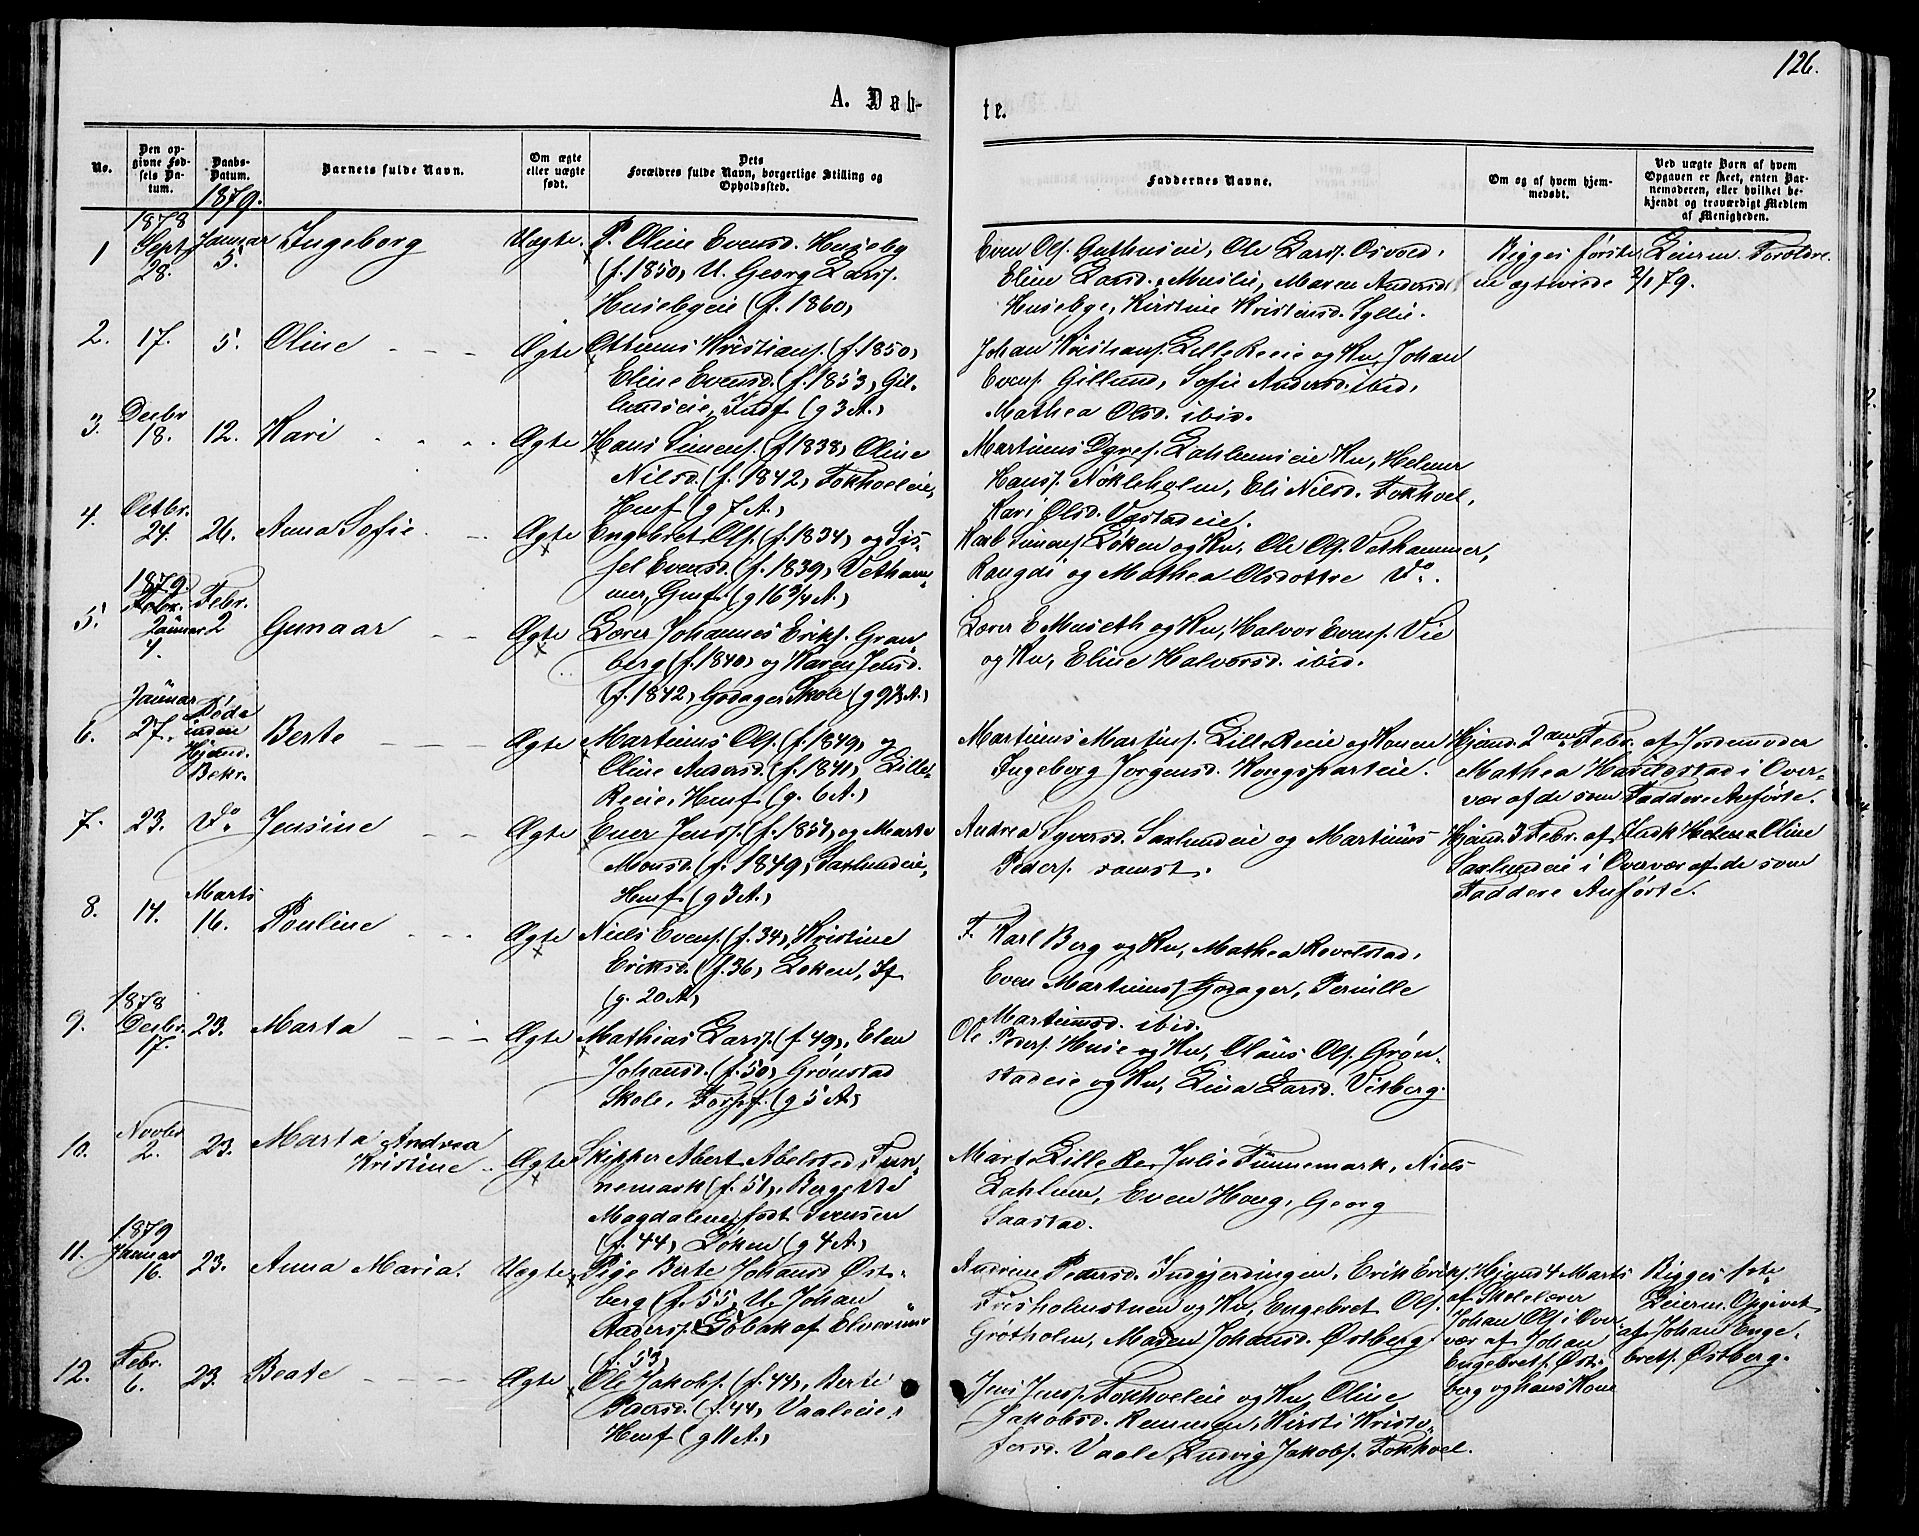 126.
A. Døb-
te.
No.
Den op-
givne Fød-
sels Da-
tum.
Daabs-
Datum.
1879.
Barnets fulde Navn.
Om ægte
eller uægte
født.
Dets
Forældres fulde Navn, borgerlige Stilling og
Opholdssted.
Faddernes Navne.
Om og af hvem hjem-
medøbt.
Ved uægte Barn af hvem
Opgaven er skeet, enten Bar-
nemoderen, eller hvilket be-
kjendt og troværdigt Medlem
af Menigheden.
1
1878
Sept
28.
Januar
5.
Ingeborg
Uægte.
P. Oline Evensd. Huseby
(f. 1850) U. Georg Larss.
Husebyeie (f. 1860)
Even Ols. Guthuseie, Ole Larss. Osvold,
Eline Larsd. Muslie, Maren Andersd.
Husebye, Kirstine Kristensd. Syllie.
Bigges første Leierm. Forældre
ne ægtviede 2/1 79.
2.
17.
5.
Oline
Ægte
Ottinus Kristians. (f. 1850)
Eline Evensd. (f. 1853) Gil-
lundseie, Indf (g 3 A.)
Johan Kristians. Lille Reeie og Kn, Johan
Evens. Gillund, Sofie Andersd. ibid,
Mathea Olsd. ibid.
3.
Decbr
18.
12.
Kari
Ægte
Hans Simens. (f 1838) Oline
Nilsd. (f. 1842) Fokholeie,
Husf (g 7 A.)
Martinus Dyres. Lahlumseie Kn, Helmer
Hanss. Nökleholm, Eli Nilsd. Fokhol,
Kari Olsd. Vestadeie.
4.
Octbr.
24.
26.
Anna Sofie
Ægte
Engebret Ols. (f. 1834) og Sis-
sel Evensd. (f. 1839) Vetham-
mer, Gmf. (g 16 3/4 A.)
Karl Simens. Løken og Kn, Ole Ols. Vethammer,
Rangdi og Mathea Olsdottre Do.
5.
1879
Januar
7.
Febr.
2
Gunaar
Ægte
Lærer Johannes Eriks. Gran-
berg (f. 1840) og Karen Jensd.
(f. 1842) Godager Skole (g 9½ A.)
Lærer E Museth og Kn, Halvor Evens. Vie
og Kn, Eline Halvorsd. ibid.
6.
Januar
27.
Døde
inden
Hjemd.
Bekr.
Berte
Ægte
Martinus Ols. (f. 1849) og
Oline Andersd. (f. 1841) Lille
Reeie, Husf (g. 6 A.)
Martinus Martins. Lille Reeie og Konen
Ingeborg Jorgensd. Kongsparteie.
Hjemd. 2den Febr. af Jordemoder
Mathea Haugstad i Over-
vær af de som Faddere Anførte.
7.
23.
Do.
Jensine
Ægte
Ener Jenss. (f. 1857) og Marte
Monsd. (f. 1849) Saxlundeie,
Husf (g 3 A.)
Andrea Syversd. Saxlundeie og Martinus
Peders. samst.
Hjemd. 3 Febr. af Indk Helene Oline
Saxlundeie i Overvær af de som
Faddere Anførte.
8.
14.
Marts
16.
Pouline
Ægte
Niels Evens. (f. 34), Kristine
Eriksd. (f. 36) Løken, Sf
(g. 20 A)
F. Karl Berg og Kn, Mathea Rovelstad,
Even Martinuss. Godager, Pernille
Martinusd. ibid.
9.
1878
Decbr.
17.
23.
Marta
Ægte
Mathias Larss. (f. 49), Elen
Johansd. (f. 50) Grönstad
Skole, Torpf. (g 5 A)
Ole Peders. Huse og Kn, Olaus Ols. Grön-
stadeie og Kn, Lina Larsd. Vitberg.
10.
Novbr
2.
23.
Marta Andrea
Kristine
Ægte
Skipper Abert Abelsted Fun-
nemark (f. 51), Bergitte
Magdalene født Svensen
(f. 44) Løken (g 4 A)
Marte Lille Re, Julie Funnemark, Niels
Lahlum, Even Haug, Georg
Saastad.
11.
1879
Januar
16.
23.
Anna Maria.
Uægte
Pige Berte Johansd Øst-
berg (f. 55, U. Johan
Anderss. Löbak af Elverum
(f. 53)
Andrine Pedersd. Indgjerdingen, Erik Eriks.
Frisholmstuen og Kn, Engebret Ols.
Grötholm, Maren Johansd. Østberg
Hjemd 4 Marts
af Skolelærer
Johan Ols. i Over-
vær af Johan
Engebrets. Øst-
berg og hans Kone
Bigges 1ste
Leierm. Opgivet
af Johan Enge-
brets. Østberg.
12.
Febr.
6.
23.
Beate
Ægte
Ole Jakobs. (f. 44), Berte
Pedersd. (f. 44) Vaaleeie,
Husf (g 11 A.)
Jens Jenss. Fokholeie og Kn, Oline
Jakobsd. Remmen, Kirsti Kristo-
fersd. Vaale, Ludvig Jakobs. Fokhol.